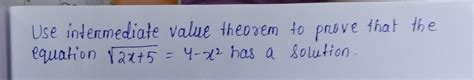 Use intermediate value theorem to prove that the
equation √2x+5 = 4-x² has a solution.